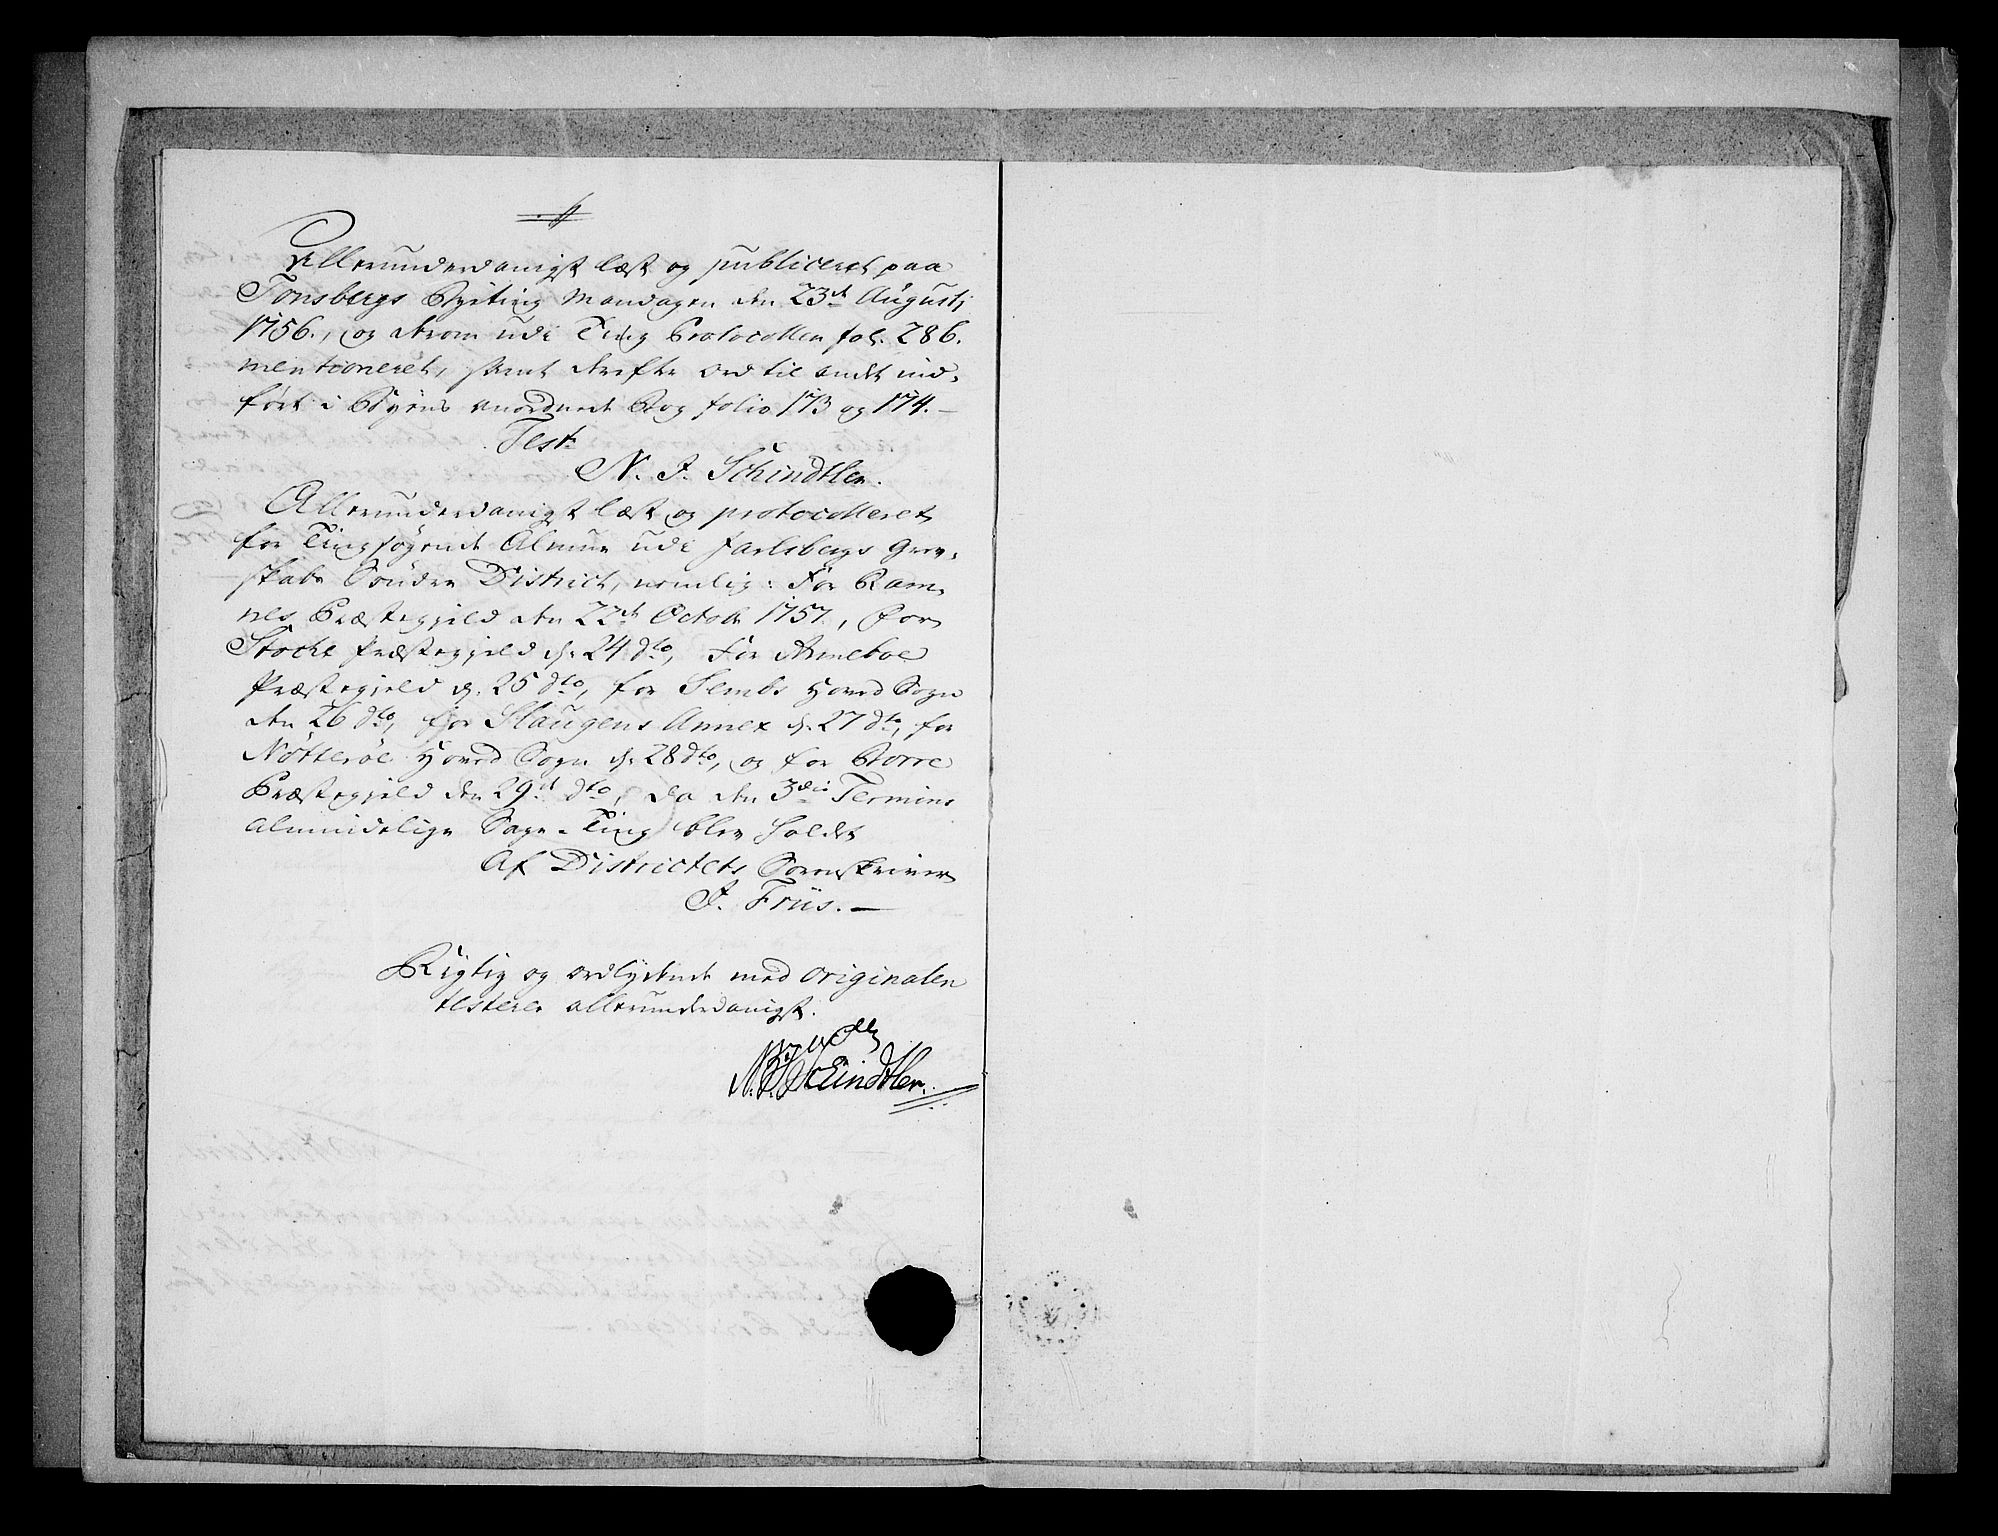 Allerunderdanigst læst og publiceret paa
Tonsbergs Byeting Mandagen den 23de Augustj
1756., og derom udi Ting Protocollen fol. 286.
mentioneret, samt derefter ord til andet ind-
ført i Byens anordnede Bog folio 173 og 174. –
Test
N. J. Schindtler.
Allerunderdanigst læst og protocolleret
for Tingsøgende Almue udi Jarlsbergs Grev-
skabs Søndre District, nemlig: For Ram-
nes Præstegield den 22de Octobr 1757, for
Stocke Præstegjeld d. 24 dto, For Arneboe
Præstegjeld d. 25 dto, for Sembs Hoved Sogn
den 26 dto, for Slaugens Annex d. 27 dto, for
Nøtterøe Hoved Sogn d. 28 dto, og for Borre
Præstegjeld den 29de dto, da den 3die Termins
almindelige Sage-Ting blev holdet
Af Districtets Sorenskriver
J. Friis. –
Rigtig og ordlydende med originalen
testerer allerunderdanigst.
N. J. Schindtler.